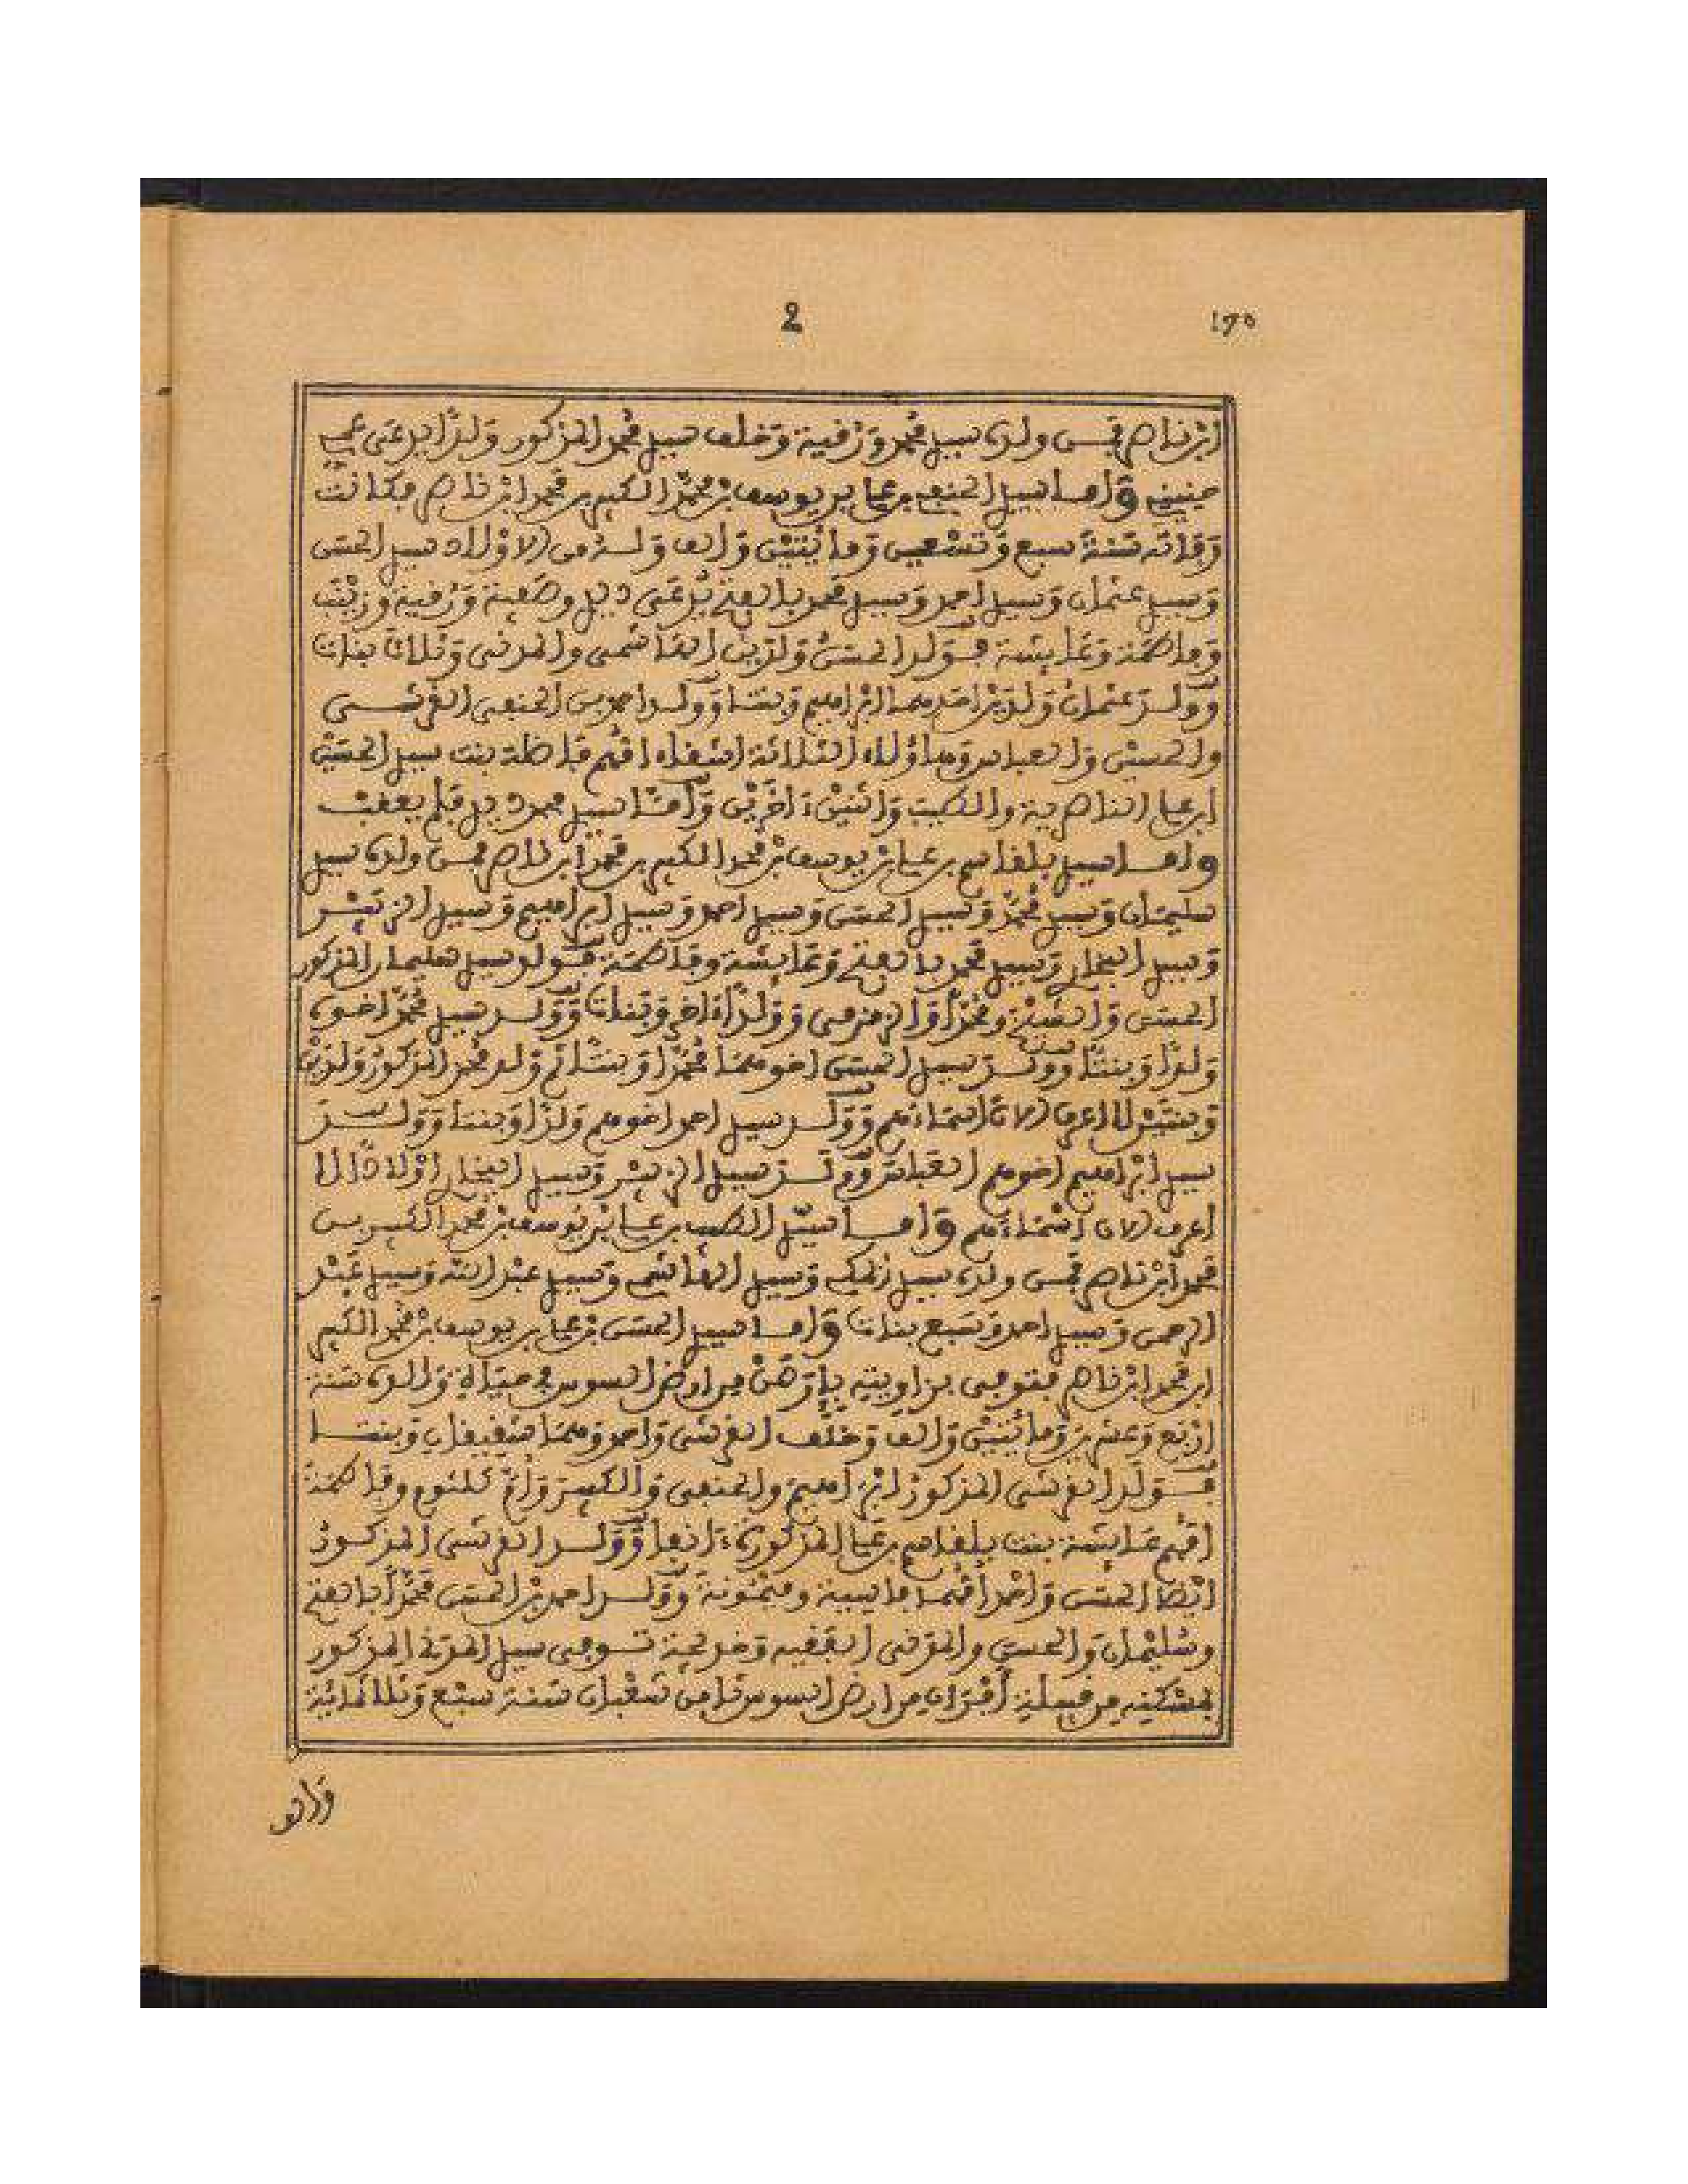 2
170
ابن ناصر فمن ولده سيدي محمد ورقية وخلف سيدي محمد المذكور ولدا يدعى
حنيني وأما سيدي الحنفي بن علي بن يوسف بن محمد الكبير بن محمد ابن ناصر فكانت
وفاته سنة سبع وتسعين ومائتين وألف وله من الأولاد سيدي الحسن
وسيدي عثمان وسيدي احمد وسيدي محمد بالفتح يدعى ديدي وصفية ورقية وزينب
وفاطمة وعائشة فولد الحسن ولدين الهاشمي والمدني وثلاث بنات
وولد عثمان ولدين احدهما ابراهيم وبنتا وولد احمد بن الحنفي القرشي
والحسين والعباس وهاؤلاء الثلاثة اشقاء امهم فاطمة بنت سيدي الحسين
ابن علي الناصرية والطيب واثنين اخرين وأما سيدي محمد ديدي فلم يعقب
وأما سيدي بلقاسم بن علي بن يوسف بن محمد الكبير بن محمد ابن ناصر فمن ولده سيدي
سليمان وسيدي محمد وسيدي الحسن وسيدي احمد وسيدي ابراهيم وسيدي البشير
وسيدي المختار وسيدي محمد بالفتح وعائشة وفاطمة فولد سيدي سليمان المذكور
الحسن ومحمدا وولدا اخر وبنات وولد سيدي محمد اخوه
ولدا وبنتا وولد سيدي الحسن اخوهما محمدا وبنتا ثم ولد محمد المذكور ولدين
وبنتين لا اعرف الان اسماءهم وولد سيدي احمد اخوهم ولدا وبنتا وولد
سيدي ابراهيم اخوهم العباس وولد سيدي البشير وسيدي المختار اولادا لا
اعرف الان اسماءهم وأما سيدي الطيب بن علي بن يوسف بن محمد الكبير بن
محمد ابن ناصر فمن ولده سيدي المكي وسيدي الهاشمي وسيدي عبد الله وسيدي عبد
الرحمن وسيدي احمد وسبع بنات وأما سيدي الحسن بن علي بن يوسف بن محمد الكبير
ابن محمد ابن ناصر فتوفي بزاويته من ارض السوس في حياة والده سنة
اربع وعشرين ومائتين وألف وخلف القرشي واحمد وهما شقيقان وبنتا
فولد القرشي المذكور ابراهيم والحنفي والكبير وأم كلثوم وفاطمة
امهم عائشة بنت بلقاسم بن علي المذكورة انفا وولد القرشي المذكور
ايضا الحسن واحمد امهما ميمونة وولد احمد بن الحسن محمدا بالفتح
وسليمان والحسن والمدني الفقيه وخديجة توفي سيدي المدني المذكور
بمسكنه من قبيلة من ارض السوس ثامن شعبان سنة سبع وثلاثمائة
وألف